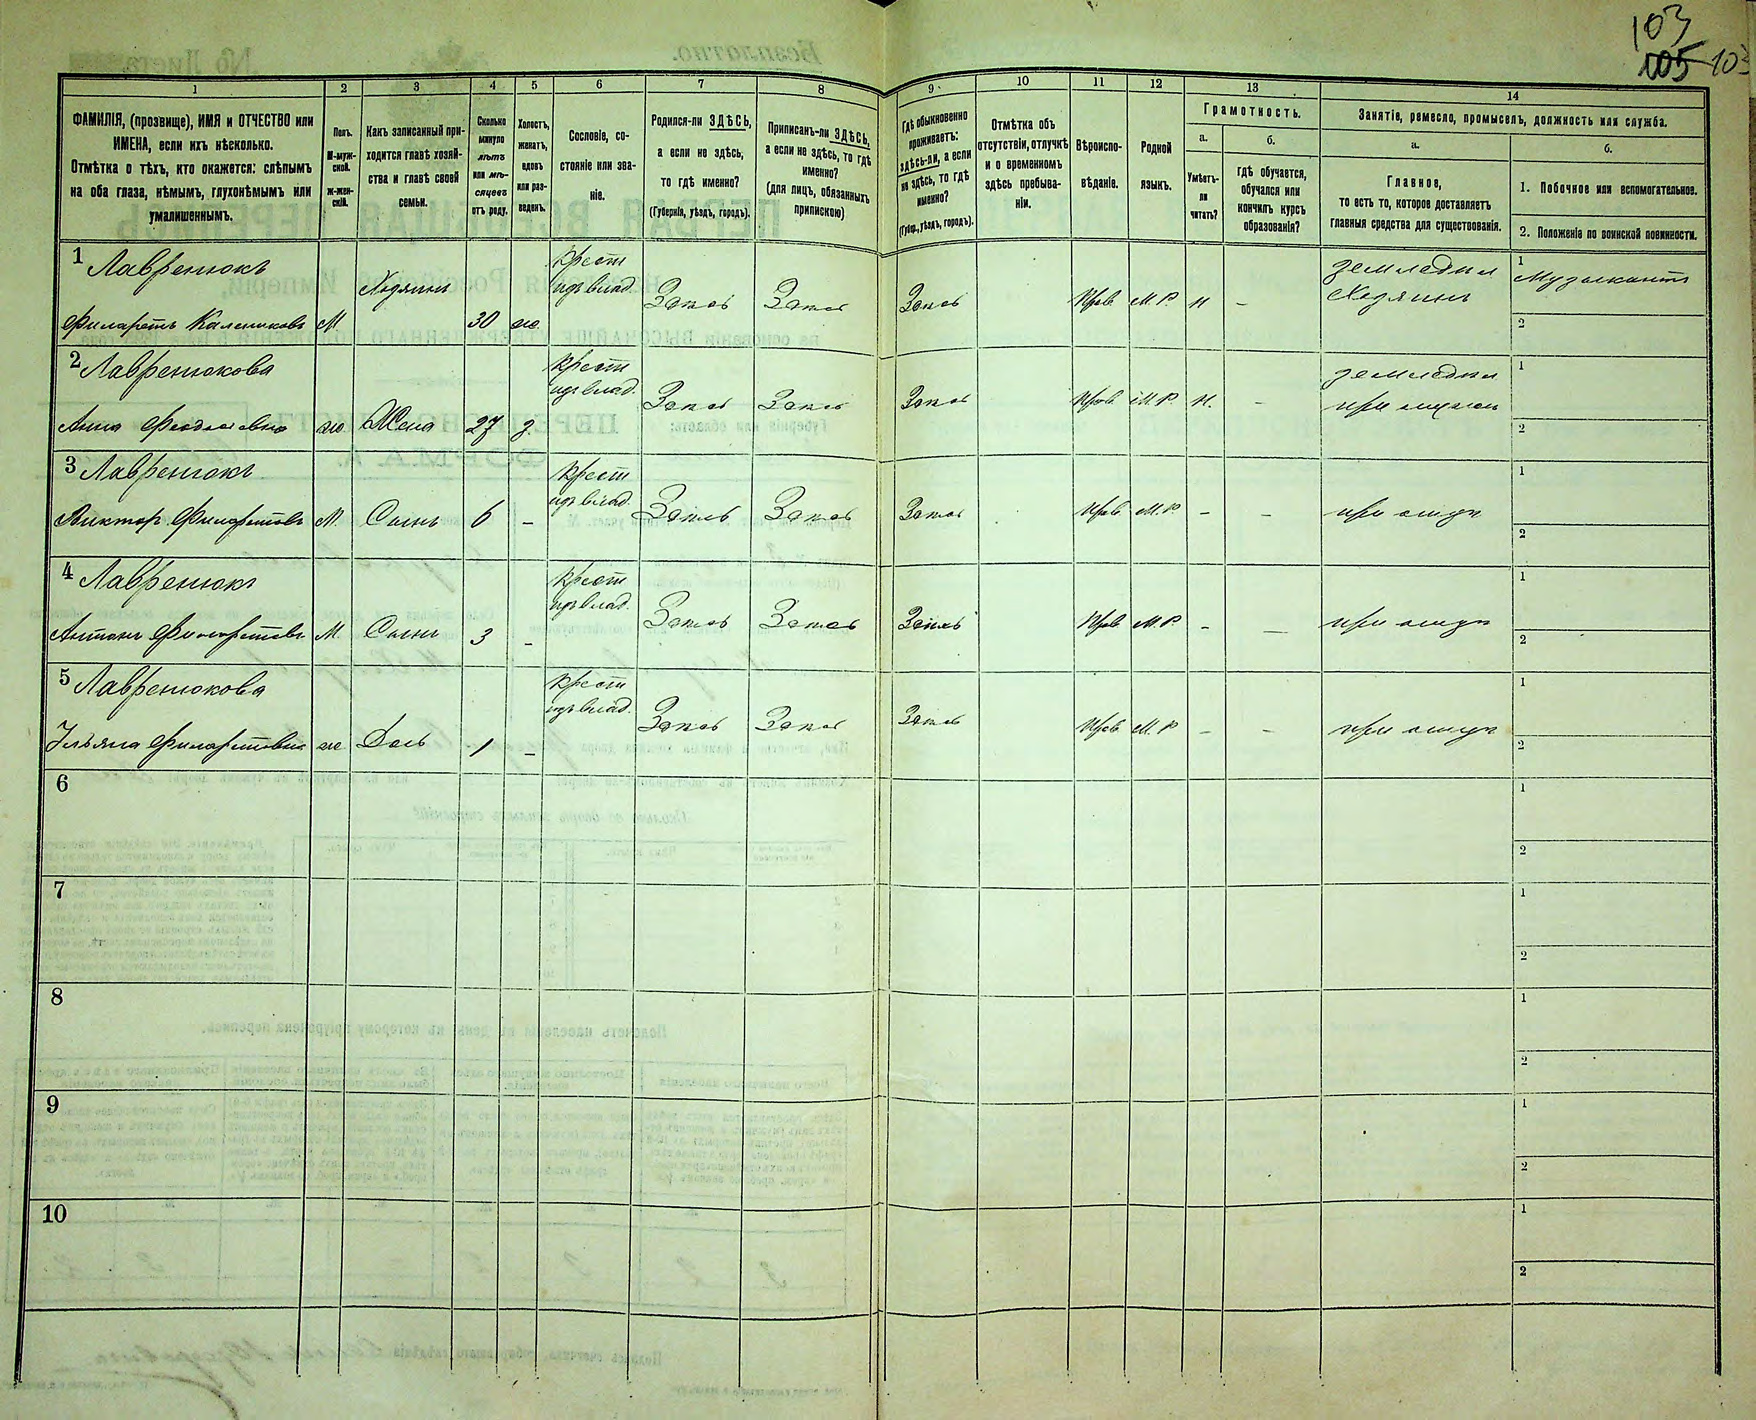 103
105 103
1 2 3 4 5 6 7 8 9 10 11 12 13 14
ФАМИЛІЯ, (прозвище), ИМЯ и ОТЧЕСТВО или
ИМЕНА, если ихъ нѣсколько.
Отмѣтка о тѣхъ, кто окажется: слѣпымъ
на оба глаза, нѣмымъ, глухонѣмымъ или
умалишеннымъ.
Полъ.
М-муж-
ской.
ж-жен-
скій.
Какъ записанный при-
ходится главѣ хозяй-
ства и главѣ своей
семьи.
Сколько
минуло
лѣтъ
или мѣ-
сяцевъ
отъ роду.
Холостъ,
женатъ,
вдовъ
или раз-
веденъ.
Сословіе, со-
стояніе или зва-
ніе.
Родился-ли ЗДѢСЬ,
а если не здѣсь,
то гдѣ именно?
(Губернія, уѣздъ, городъ).
Приписанъ-ли ЗДѢСЬ,
а если не здѣсь, то гдѣ
именно?
(для лицъ, обязанныхъ
припискою)
Гдѣ обыкновенно
проживаетъ:
здѣсь-ли, а если
не здѣсь, то гдѣ
именно?
(Губер., уѣздъ, городъ).
Отмѣтка объ
отсутствіи, отлучкѣ
и о временномъ
здѣсь пребыва-
ніи.
Вѣроиспо-
вѣданіе.
Родной
языкъ.
Грамотность.
а.
Умѣетъ-
ли
читать?
б.
Гдѣ обучается,
обучался или
кончилъ курсъ
образованія?
Занятіе, ремесло, промыселъ, должность или служба.
а.
Главное,
то есть то, которое доставляетъ
главныя средства для существованія.
б.
1. Побочное или вспомогательное.
2. Положеніе по воинской повинности.
1 Лавренюкъ Хозяинъ крест земледѣл 1 Музыкантъ
изъ влад. Здесь Здесь Здесь Прав М.Р. н - Хозяинъ
Филаретъ Калениковъ М. 30 ж. 2
2 Лавренюкова крест земледѣл 1
изъ влад. Здесь Здесь Здесь Прав М.Р. н. - при мужи
Анна ж Жена 27 з. 2
3 Лавренюкъ крест 1
изъ влад. Здесь Здесь Здесь Прав М.Р. - - при отцѣ
Виктор Филаретовъ М. Сынъ 6 - 2
4 Лавренюкъ крест 1
изъ влад. Здесь Здесь Здесь Прав М.Р. - - при отцѣ
Антонъ Филаретовъ М. Сынъ 3 - 2
5 Лавренюкова крест 1
изъ влад. Здесь Здесь Здесь Прав М.Р - - при отцѣ
Ульяна Филаретовна ж Дочь 1 - 2
6 1
2
7 1
2
8 1
2
9 1
2
10 1
2